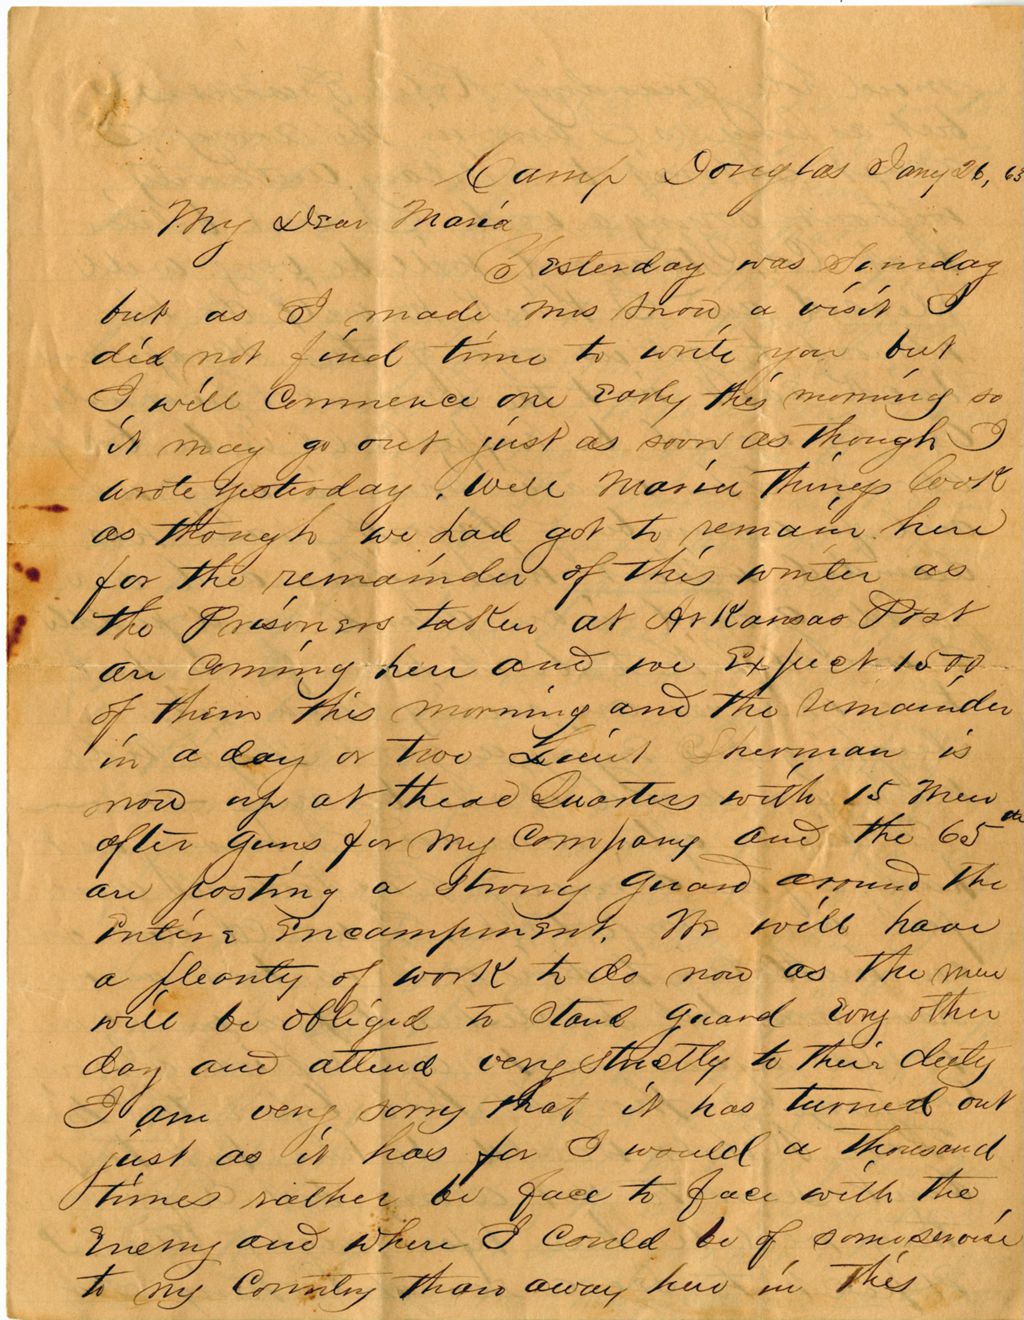 Camp Douglas Jany 26, 63
My Dear Maria
Yesterday was Sunday
but as I made Mrs Snow a visit I
did not find time to write you but
I will commence one Early this morning so
it may go out just as soon as though I
wrote yesterday. Well Maria Things look
as though we had got to remain here
for the remainder of this winter as
the Prisoners taken at Arkansas Post
are coming here and we Expect 1500
of them this morning and the remainder
in a day or two Lieut Sherman is
now up at Head Quarters with 15 Men
after guns for my company and the 65th
are posting a strong guard around the
Entire Encampment. We will have
a pleanty of work to do now as the men
will be obliged to stand guard Evry other
day and attend very strictly to their deuty
I am very sorry that it has turned out
just as it has for I would a thousand
times rather be face to face with the
Enemy and where I could be of some service
to my Country than away here in this